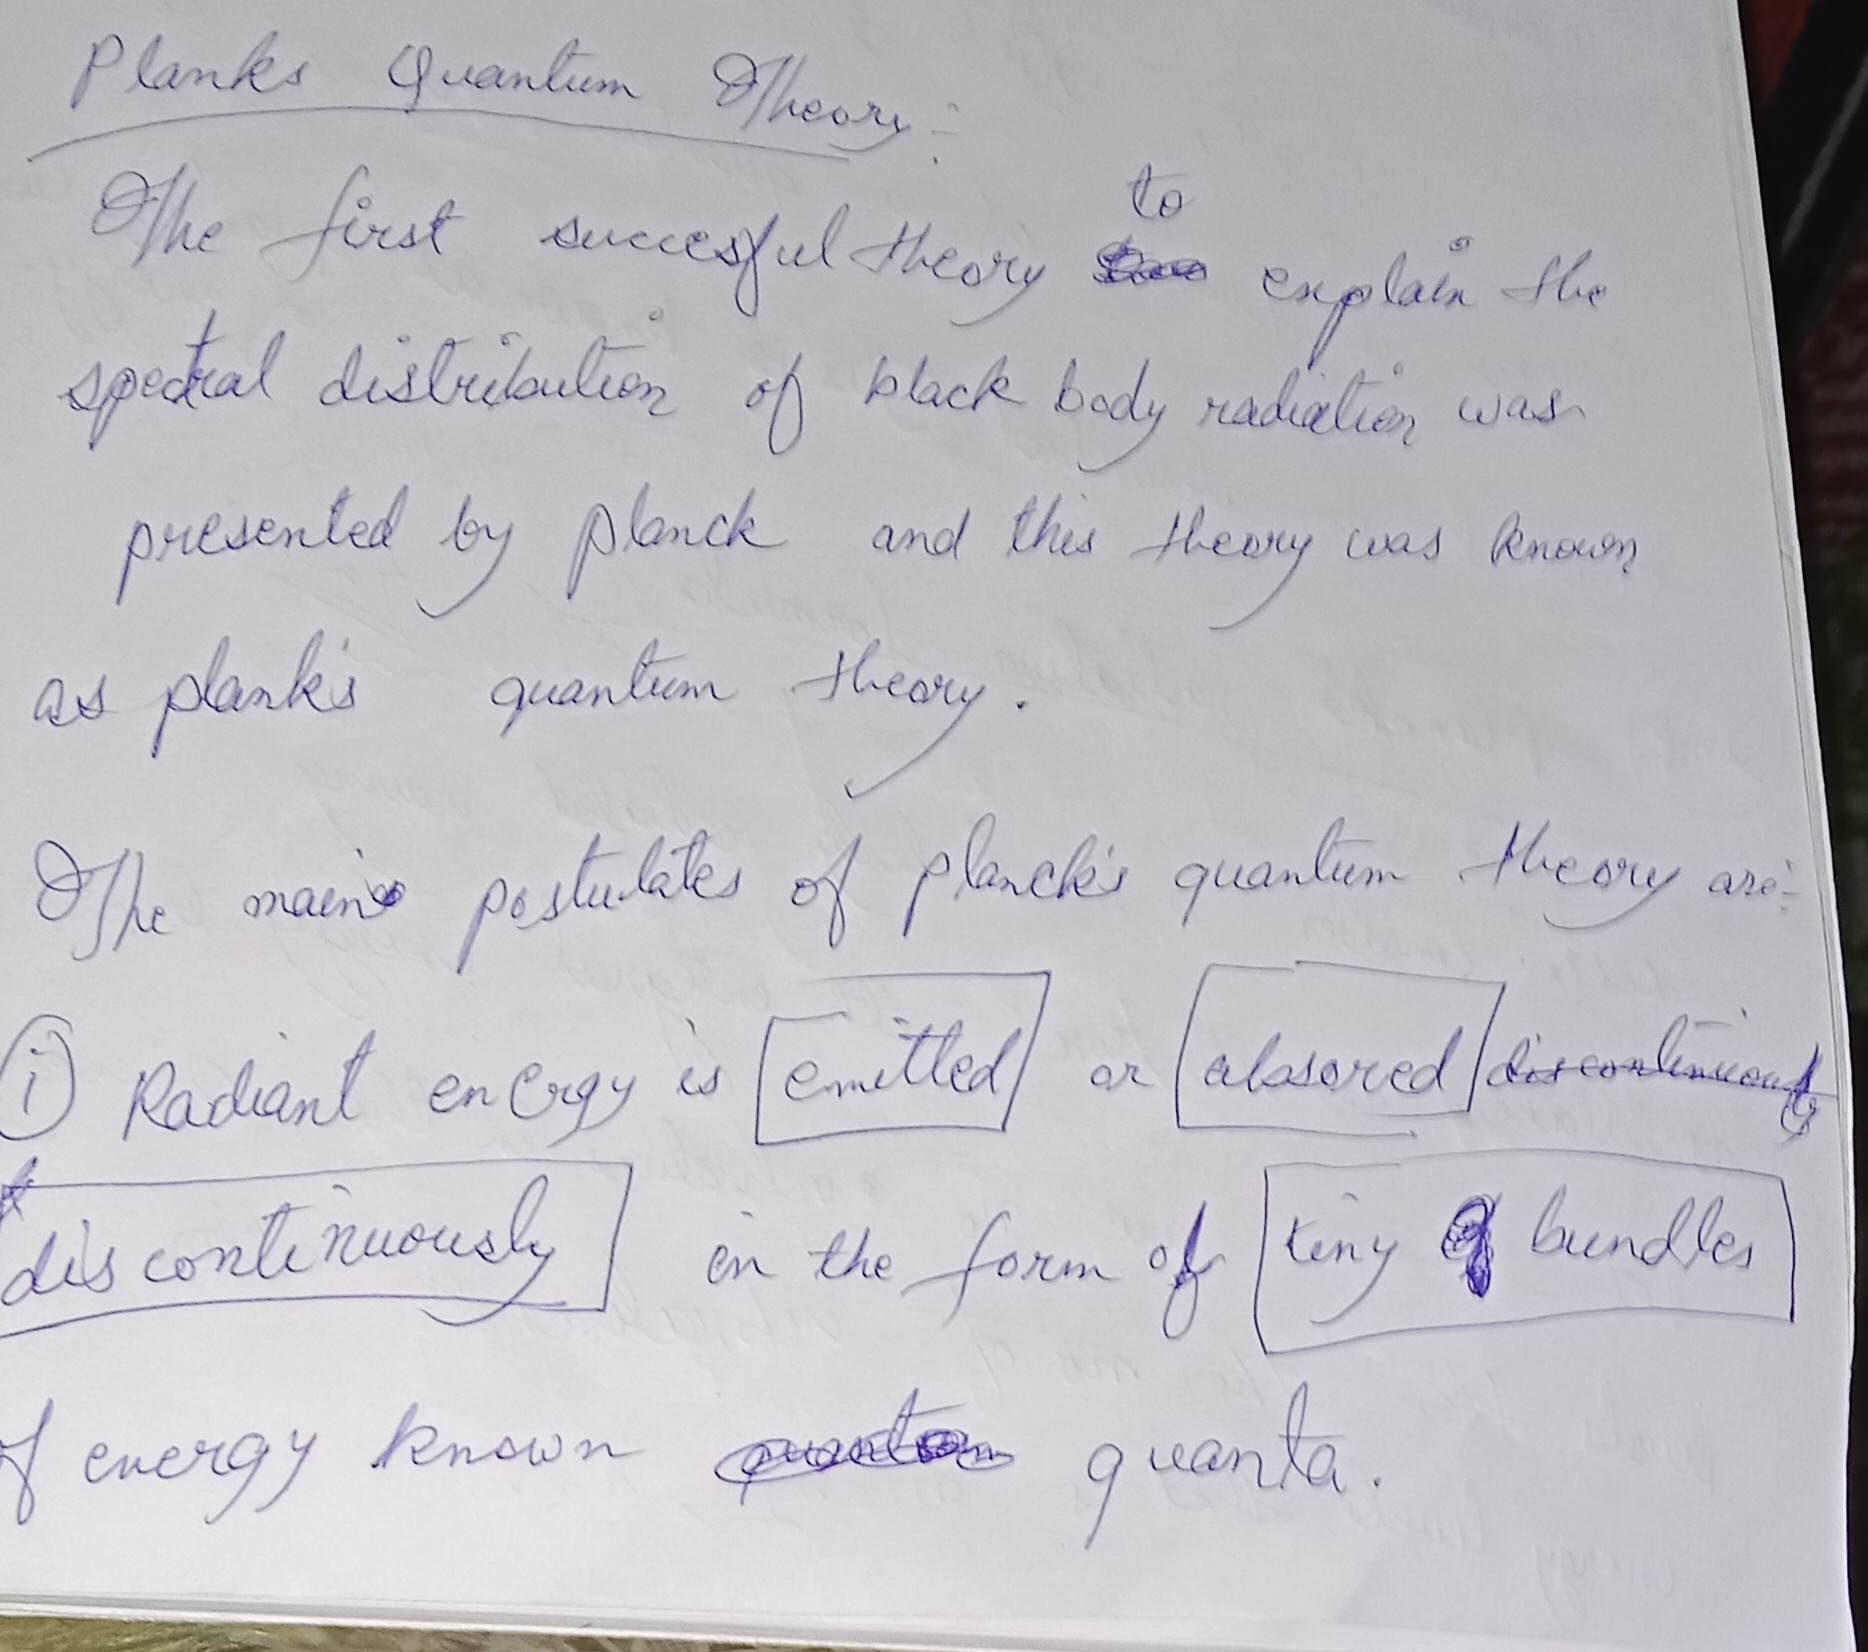 Planks Quantum Theory:-
The first succesful theory to explain the
spectral distribution of black body radiation was
presented by planck and this theory was known
as plank's quantum theory.
The main postulates of planck's quantum theory are:-
(i) Radiant energy is emitted or absored discontinuously
discontinuously in the form of tiny bundles
of energy known quanta.